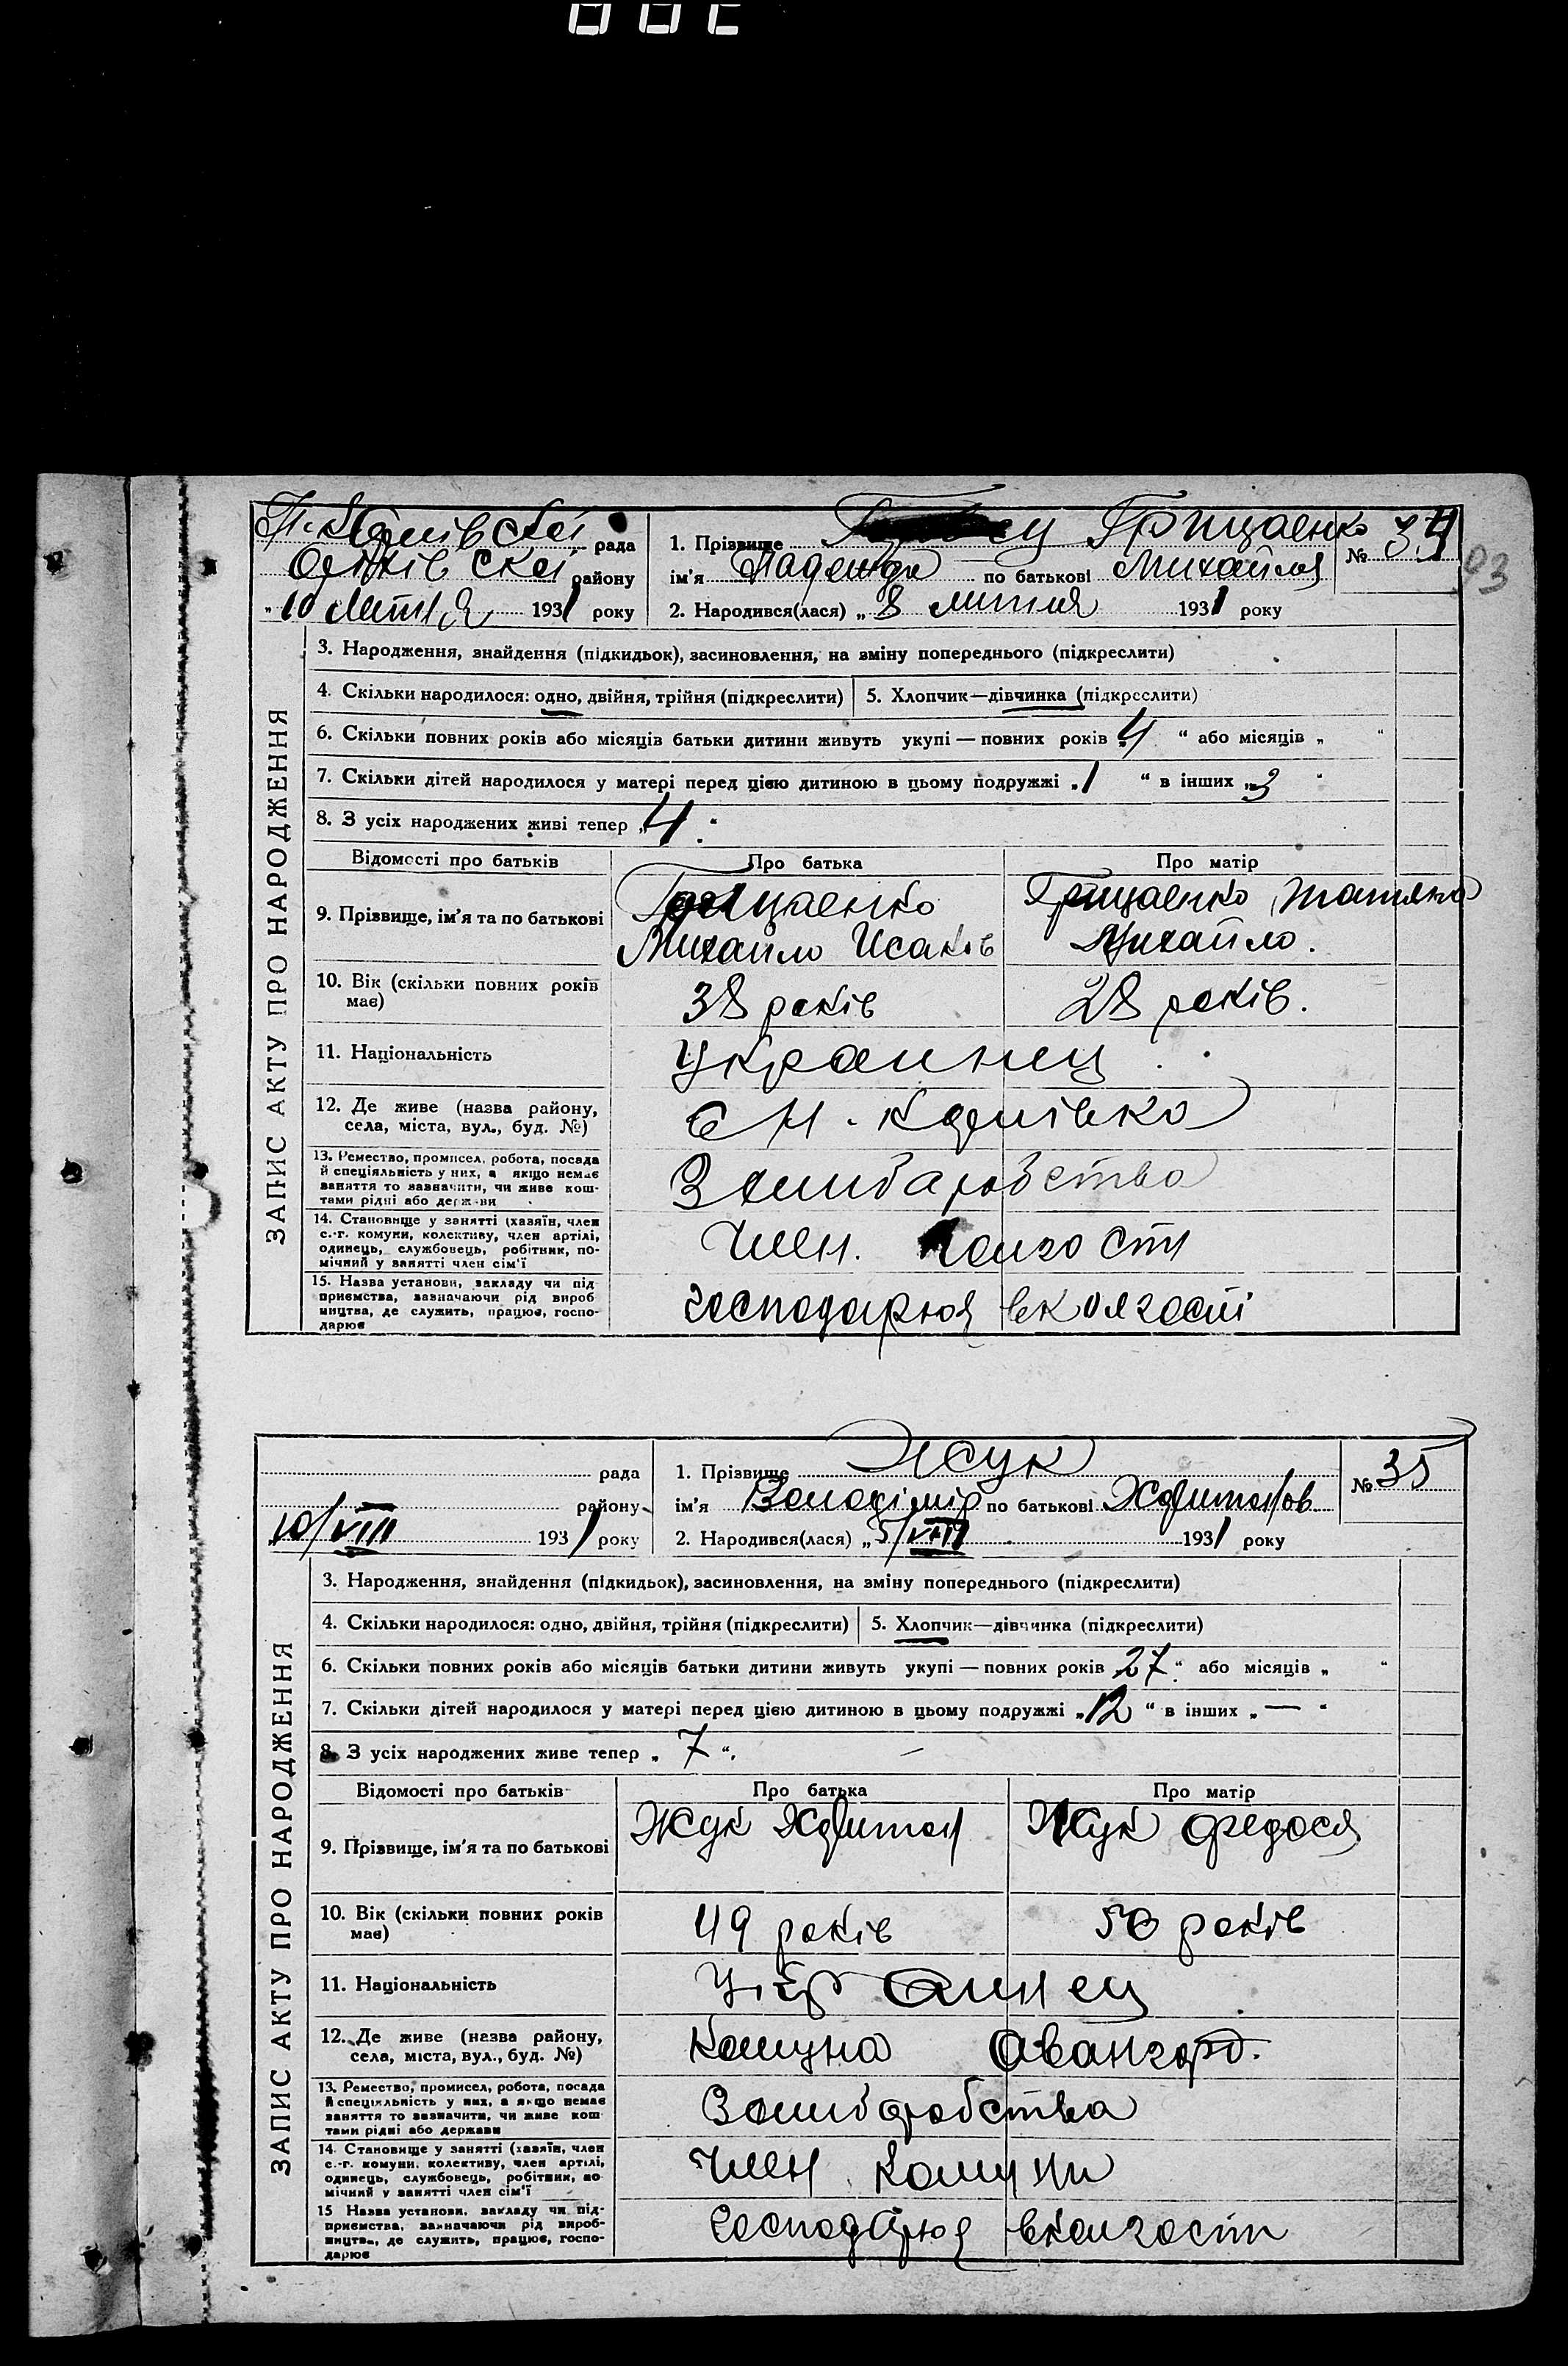 Н. Карлівскеї рада
Оріхівскеї району
„10 Липня 1931 року
1. Прізвище Грицаенко
№ 34
93
ім'я Надежда по батькові Михайлов
2. Народився(лася) „8 липня 1931 року
ЗАПИС АКТУ ПРО НАРОДЖЕННЯ
3. Народження, знайдення (підкидьок), засиновлення, на зміну попереднього (підкреслити)
4. Скільки народилося: одно, двійня, трійня (підкреслити) 5. Хлопчик—дівчинка (підкреслити)
6. Скільки повних років або місяців батьки дитини живуть укупі — повних років „4 “ або місяців „ “
7. Скільки дітей народилося у матері перед цією дитиною в цьому подружжі „1 “ в інших „3 “
8. З усіх народжених живі тепер „4“
Відомості про батьків Про батька Про матір
9. Прізвище, ім'я та по батькові
Грицаенко
Михайло Исаків
Грицаенко Татьяна
Михайло.
10. Вік (скільки повних років має)
38 років 28 років.
11. Національність
Украинец
12. Де живе (назва району,
села, міста, вул., буд. №)
С Н. Карлівка
13. Ремество, промисел, робота, посада
й спеціяльність у них, а якщо немає
заняття то зазначити, чи живе кош-
тами рідні або держави
14. Становище у занятті (хазяїн, член
с.-г. комуни, колективу, член артілі,
одинець, службовець, робітник, по-
мічний у занятті член сім'ї
Член.
15. Назва установи, закладу чи під
приємства, зазначаючи рід вироб
ництва, де служить, працює, госпо-
дарює
господарюя вколгоспі
рада
району
10/VIII 1931 року
1. Прізвище Жук
№ 35
ім'я Володімір по батькові Харитонов
2. Народився(лася) „5/VIII 1931 року
ЗАПИС АКТУ ПРО НАРОДЖЕННЯ
3. Народження, знайдення (підкидьок), засиновлення, на зміну попереднього (підкреслити)
4. Скільки народилося: одно, двійня, трійня (підкреслити) 5. Хлопчик—дівчинка (підкреслити)
6. Скільки повних років або місяців батьки дитини живуть укупі — повних років 27 “ або місяців „ “
7. Скільки дітей народилося у матері перед цією дитиною в цьому подружжі „12 “ в інших „ — “
8. З усіх народжених живе тепер „ 7 “.
Відомості про батьків Про батька Про матір
9. Прізвище, ім'я та по батькові
Жук Харитон Жук Федося
10. Вік (скільки повних років має)
49 років 50 років
11. Національність
Украинец
12. Де живе (назва району,
села, міста, вул., буд. №)
Комуна Авангард.
13. Ремество, промисел, робота, посада
й спеціяльність у них, а якщо немає
заняття то зазначити, чи живе кош
тами рідні або держави
14. Становище у занятті (хазяїн, член
с.-г. комуни, колективу, член артілі,
одинець, службовець, робітник, по
мічний у занятті член сім'ї
Член Комуни
15 Назва установи, закладу чи під-
приємства, зазначаючи рід вироб-
ництва, де служить, працює, госпо-
дарює
Господарюя вколгоспи